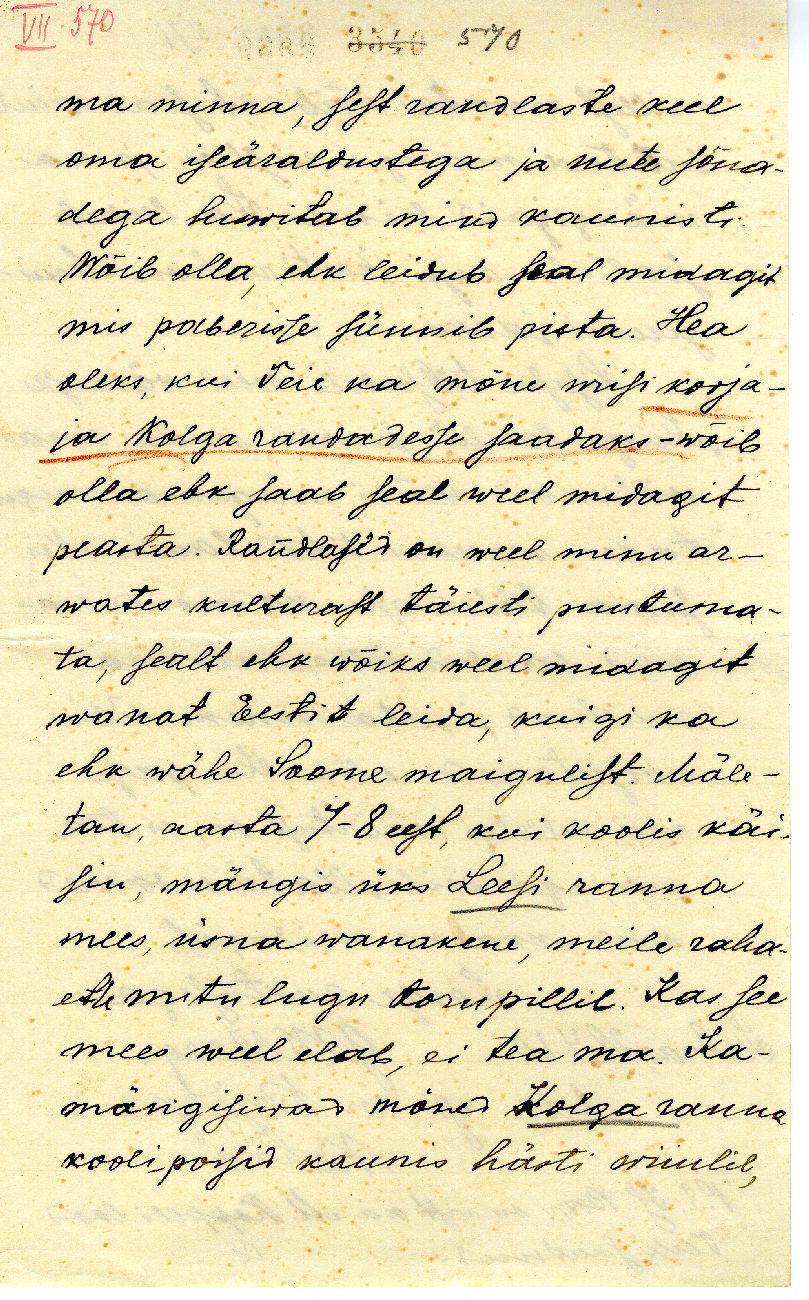 VII 570
3340 570
ma minna, sest randlaste keel
oma iseäraldustega ja mute sõna-
dega huwitab mind kaunisti.
Wõib olla, ehk leidub seal midagit
mis paberisse sünnib pista. Hea
oleks, kui Teie ka mõne wiisi korja-
ja Kolga randadesse saadaks - wõib
olla ehk saab seal weel midagit
peasta. Randlased on weel minu ar-
wates kulturast täiesti puutuma-
ta, sealt ehk wõiks weel midagit
wanat Eestit leida, kuigi ka
ehk wähe Soome maigulist. Mäle-
tan, aasta 7-8 eest, kui koolis käi-
sin, mängis üks Leesi ranna
mees, üsna wanakene, meile raha-
ette mitu lugu torupillil. Kas see
mees weel elab, ei tea ma. Ka-
mängisiwad mõned Kolga ranna
kooli poisid kaunis hästi wiiulil,